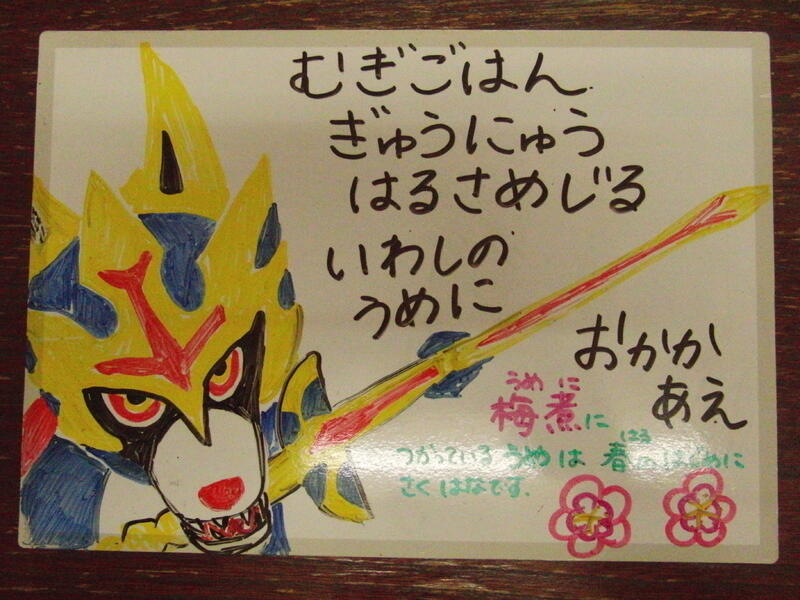 むぎごはん
ぎゅうにゅう
はるさめじる
いわしの
うめに
おかか
あえ
うめ に
梅煮に
はる
つかっている うめは 春のはじめに
さくはなです.